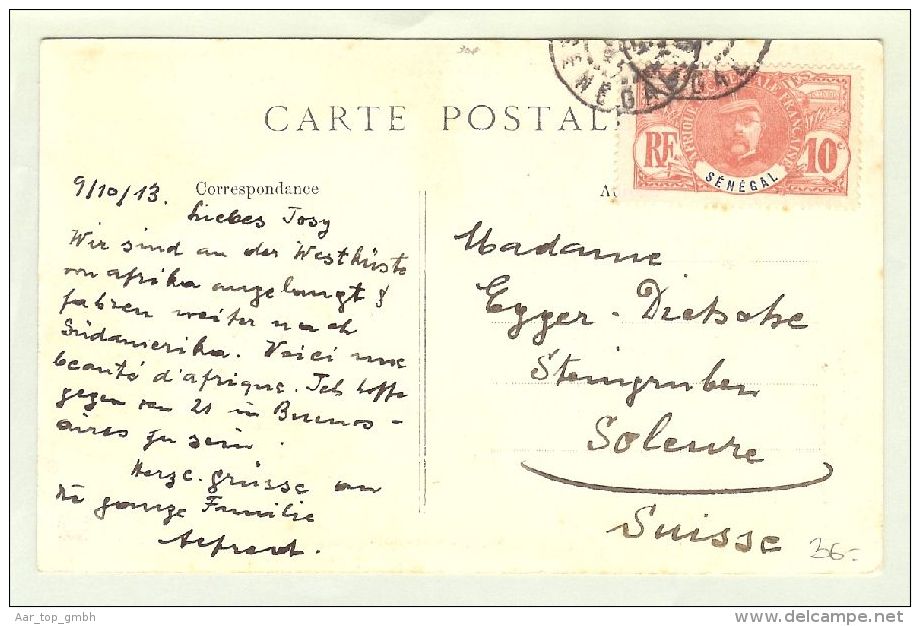 CARTE POSTAL
NÉGAL GAL
AFRIQUE OCCIDENTALE FRANÇAISE
RF 10c
SÉNÉGAL
Correspondance
9/10/13.
Liebes Josy
Wir sind an der Westküste
von Afrika angelangt &
fahren weiter nach
Südamerika. Voici une
beauté d'afrique. Ich hoffe
gegen den 21 in Buenos-
aires zu sein.
Herzl. grüsse an
die ganze Familie
Alfred.
Madame
Egger-Dietsche
Steingruben
Soleure
Suisse
36.-
Aar_top_gmbh
www.delcampe.net